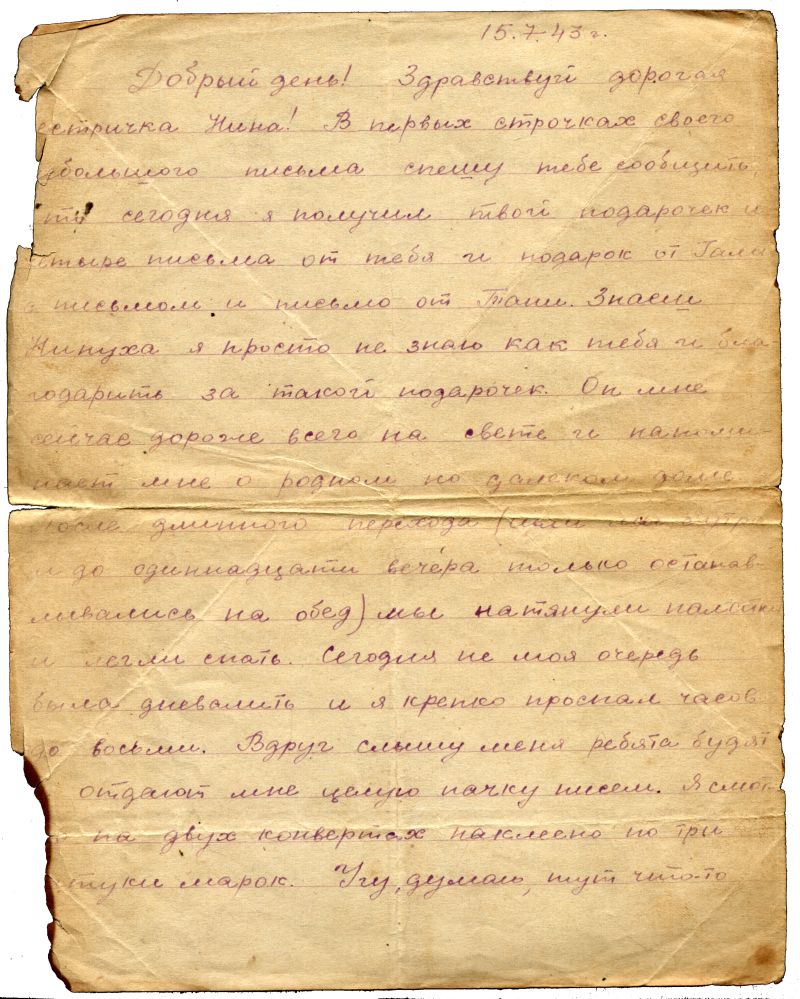 15.7.43 г.
Добрый день! Здравствуй дорогая
естричка Нина! В первых строчках своего
большого письма спешу тебе сообщить,
что сегодня я получил твой подарочек и
тыре письма от тебя и подарок от Гали
с письмом и письмо от Таши. Знаеш
Нинуха я просто не знаю как тебя и бла
годарить за такой подарочек. Он мне
сейчас дороже всего на свете и напоми-
нает мне о родном но далеком доме
после длинного перехода (шли
и до одиннадцати вечера только останав-
ливались на обед) мы натянули палатки
и легли спать. Сегодня не моя очередь
была дневалить и я крепко проспал часов
до восьми. Вдруг слышу меня ребята будят
отдают мне целую пачку писем. Я смот
на двух конвертах наклеено по три
туки марок. Угу, думаю, тут что-то